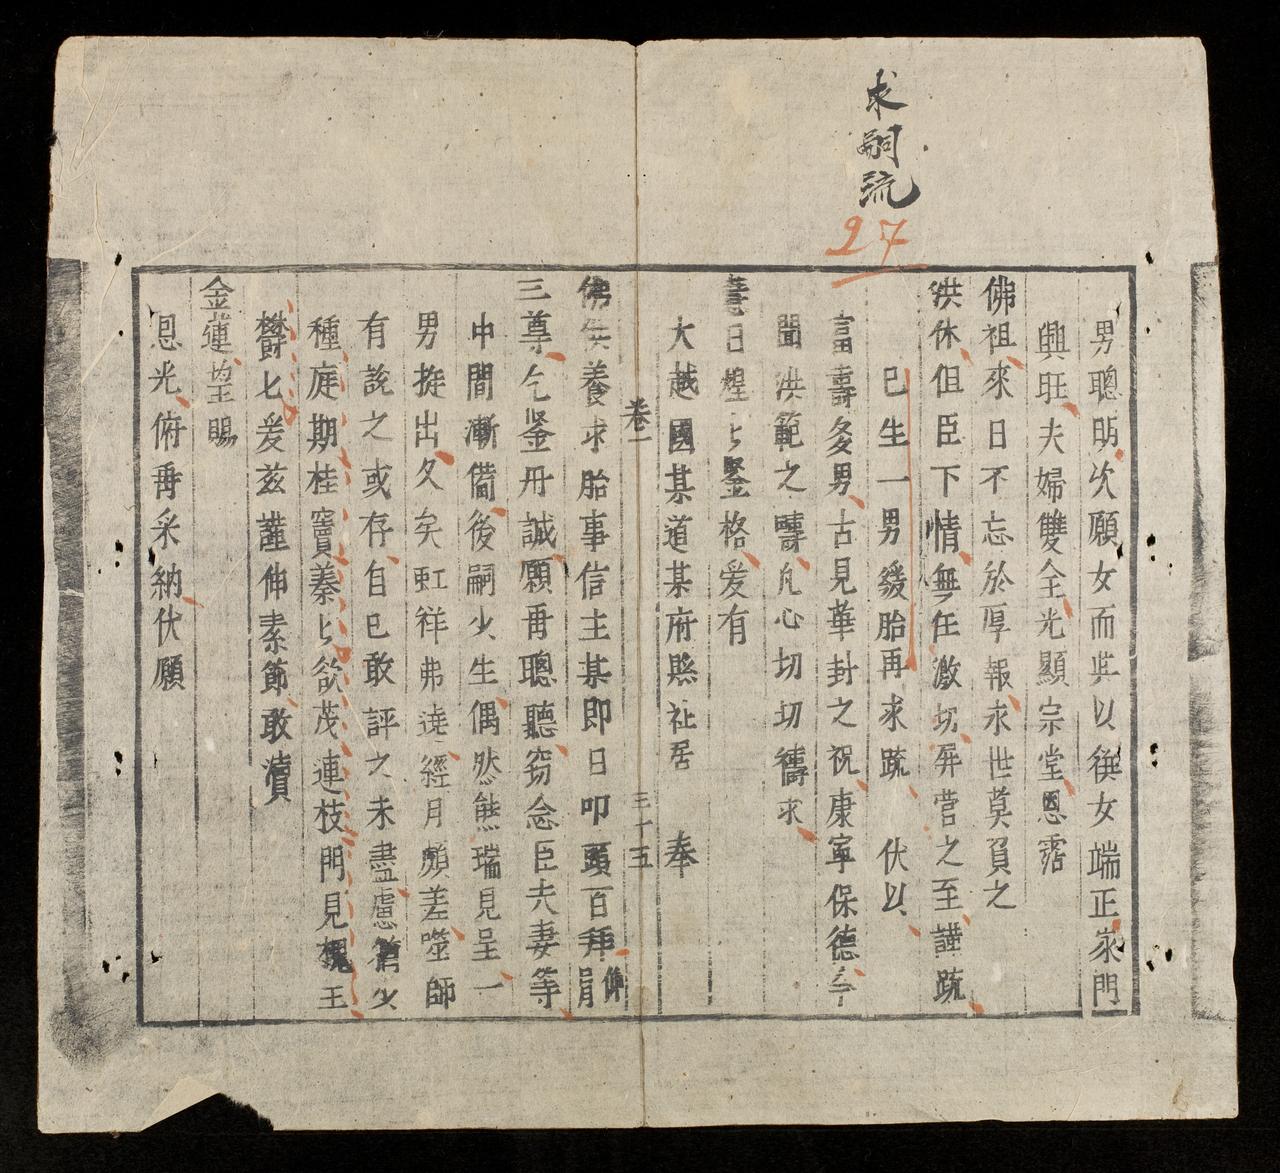 求嗣疏
27
男聰明次願女而兴以後女端正家門
興旺夫婦雙全光顯宗堂恩霑
佛祖來日不忘於厚報永世莫負之
洪休但臣下情無任激切屏营之至謹疏
已生一男緩胎再求疏 伏以
富壽多男古見華封之祝康寧保德今
聞洪範之疇凡心切切禱求
慧日煌〻鑒格爰有
大越國某道某府縣社居 奉
卷一 三十五
佛供養求胎事信主某即日叩頭百拜
三尊乞鉴丹誠願垂聰聽窃念臣夫妻等
中間漸僃後嗣少生偶然熊瑞見呈一
男挺出久矣虹祥弗遶經月頗差噬師
有說之或存自已敢評之未盡慮 少
種庭期桂竇蓁〻欲茂連枝門見槐王
欝〻爰茲謹伸素節敢瀆
金蓮望賜
恩光俯垂采納伏願